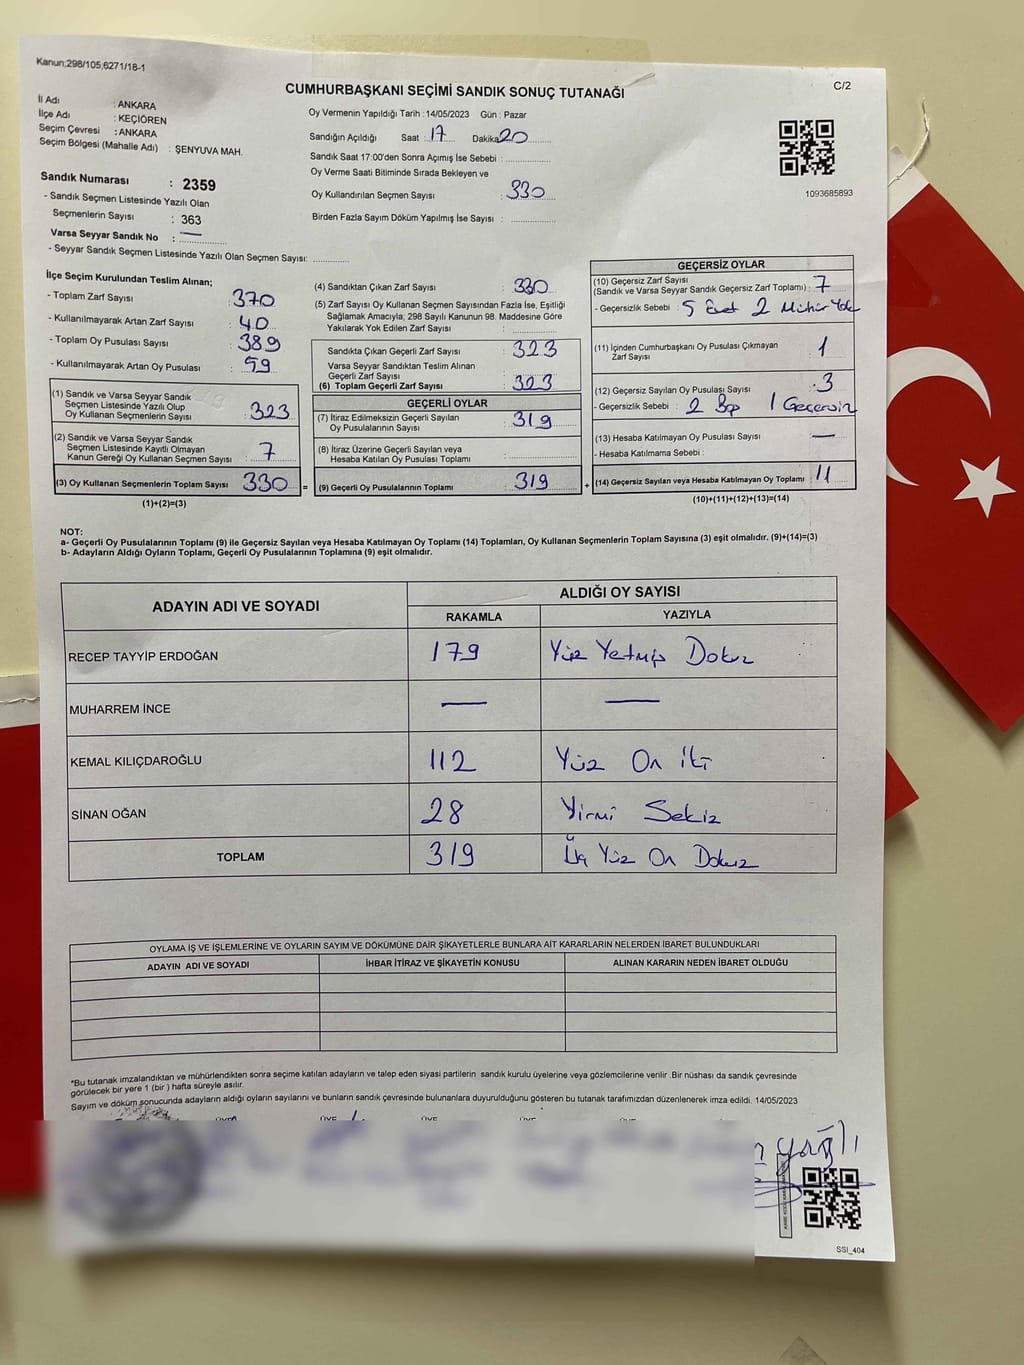 Kanun:298/105,6271/18-1
C/2
CUMHURBAŞKANI SEÇİMİ SANDIK SONUÇ TUTANAĞI
İl Adı : ANKARA
İlçe Adı : KEÇİÖREN
Seçim Çevresi : ANKARA
Seçim Bölgesi (Mahalle Adı) : ŞENYUVA MAH.
Sandık Numarası : 2359
- Sandık Seçmen Listesinde Yazılı Olan
Seçmenlerin Sayısı : 363
Varsa Seyyar Sandık No : —
- Seyyar Sandık Seçmen Listesinde Yazılı Olan Seçmen Sayısı:
Oy Vermenin Yapıldığı Tarih : 14/05/2023 Gün : Pazar
Sandığın Açıldığı Saat : 17 Dakika 20
Sandık Saat 17:00'den Sonra Açımış İse Sebebi :
Oy Verme Saati Bitiminde Sırada Bekleyen ve
Oy Kullandırılan Seçmen Sayısı : 330
Birden Fazla Sayım Döküm Yapılmış İse Sayısı :
1093685893
İlçe Seçim Kurulundan Teslim Alınan;
- Toplam Zarf Sayısı : 370
- Kullanılmayarak Artan Zarf Sayısı : 40
- Toplam Oy Pusulası Sayısı : 389
- Kullanılmayarak Artan Oy Pusulası : 59
(1) Sandık ve Varsa Seyyar Sandık
Seçmen Listesinde Yazılı Olup
Oy Kullanan Seçmenlerin Sayısı : 323
(2) Sandık ve Varsa Seyyar Sandık
Seçmen Listesinde Kayıtlı Olmayan
Kanun Gereği Oy Kullanan Seçmen Sayısı : 7
(3) Oy Kullanan Seçmenlerin Toplam Sayısı : 330
(1)+(2)=(3)
(4) Sandıktan Çıkan Zarf Sayısı : 330
(5) Zarf Sayısı Oy Kullanan Seçmen Sayısından Fazla İse, Eşitliği
Sağlamak Amacıyla; 298 Sayılı Kanunun 98. Maddesine Göre
Yakılarak Yok Edilen Zarf Sayısı :
Sandıkta Çıkan Geçerli Zarf Sayısı : 323
Varsa Seyyar Sandıktan Teslim Alınan
Geçerli Zarf Sayısı :
(6) Toplam Geçerli Zarf Sayısı : 323
GEÇERLİ OYLAR
(7) İtiraz Edilmeksizin Geçerli Sayılan
Oy Pusulalarının Sayısı : 319
(8) İtiraz Üzerine Geçerli Sayılan veya
Hesaba Katılan Oy Pusulası Toplamı :
= (9) Geçerli Oy Pusulalarının Toplamı : 319 +
GEÇERSİZ OYLAR
(10) Geçersiz Zarf Sayısı
(Sandık ve Varsa Seyyar Sandık Geçersiz Zarf Toplamı) : 7
- Geçersizlik Sebebi : 5 Evet 2 Mühür Yok
(11) İçinden Cumhurbaşkanı Oy Pusulası Çıkmayan
Zarf Sayısı : 1
(12) Geçersiz Sayılan Oy Pusulası Sayısı : 3
- Geçersizlik Sebebi : 2 Boş 1 Geçersiz
(13) Hesaba Katılmayan Oy Pusulası Sayısı : —
- Hesaba Katılmama Sebebi :
(14) Geçersiz Sayılan veya Hesaba Katılmayan Oy Toplamı : 11
(10)+(11)+(12)+(13)=(14)
NOT:
a- Geçerli Oy Pusulalarının Toplamı (9) ile Geçersiz Sayılan veya Hesaba Katılmayan Oy Toplamı (14) Toplamları, Oy Kullanan Seçmenlerin Toplam Sayısına (3) eşit olmalıdır. (9)+(14)=(3)
b- Adayların Aldığı Oyların Toplamı, Geçerli Oy Pusulalarının Toplamına (9) eşit olmalıdır.
ADAYIN ADI VE SOYADI
ALDIĞI OY SAYISI
RAKAMLA YAZIYLA
RECEP TAYYİP ERDOĞAN 179 Yüz Yetmiş Dokuz
MUHARREM İNCE — —
KEMAL KILIÇDAROĞLU 112 Yüz On İki
SİNAN OĞAN 28 Yirmi Sekiz
TOPLAM 319 Üç Yüz On Dokuz
OYLAMA İŞ VE İŞLEMLERİNE VE OYLARIN SAYIM VE DÖKÜMÜNE DAİR ŞİKAYETLERLE BUNLARA AİT KARARLARIN NELERDEN İBARET BULUNDUKLARI
ADAYIN ADI VE SOYADI İHBAR İTİRAZ VE ŞİKAYETİN KONUSU ALINAN KARARIN NEDEN İBARET OLDUĞU
*Bu tutanak imzalandıktan ve mühürlendikten sonra seçime katılan adayların ve talep eden siyasi partilerin sandık kurulu üyelerine veya gözlemcilerine verilir .Bir nüshası da sandık çevresinde
görülecek bir yere 1 (bir ) hafta süreyle asılır.
Sayım ve döküm sonucunda adayların aldığı oyların sayılarını ve bunların sandık çevresinde bulunanlara duyurulduğunu gösteren bu tutanak tarafımızdan düzenlenerek imza edildi. 14/05/2023
ÜYE ÜYE ÜYE ÜYE ÜYE
SSI_404